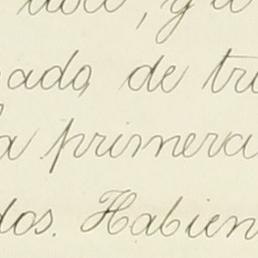 , y a
pado de tri
a primera
dos. Habien